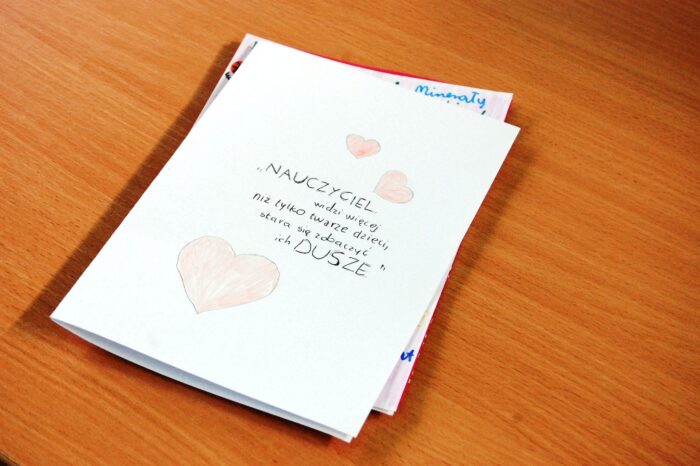 Minerały
„NAUCZYCIEL
widzi więcej
niż tylko twarze dzieci,
stara się zobaczyć
ich DUSZE”